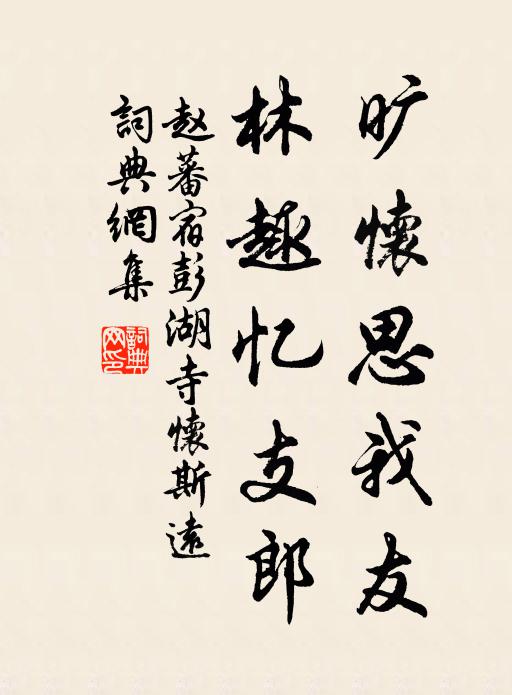 旷懷思我友
林趣忆支郎
赵蕃宿彭湖寺懷斯遠
詞典網集
詞典網印